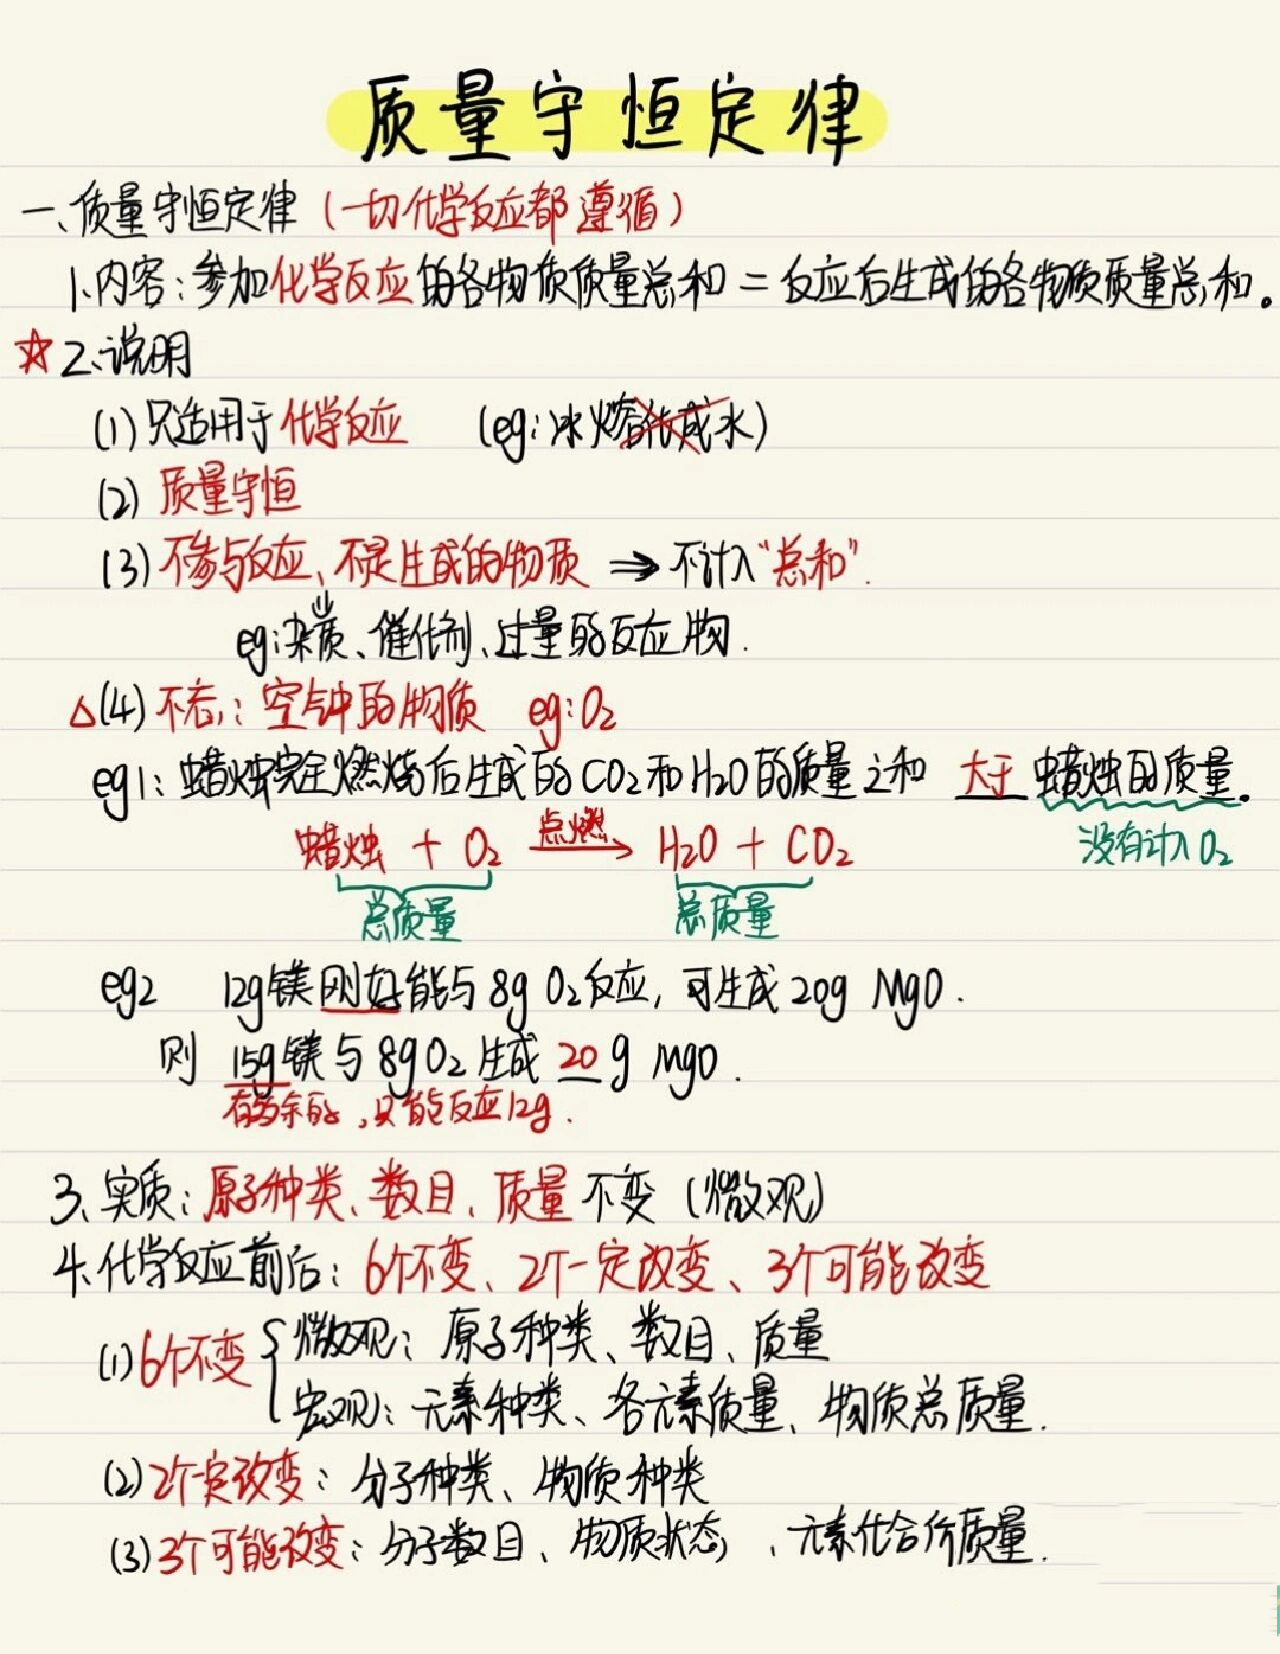 质量守恒定律
一、质量守恒定律（一切化学反应都遵循）
1.内容：参加化学反应的各物质质量总和 = 反应后生成的各物质质量总和。
☆ 2、说明
(1) 只适用于化学反应 (eg：冰熔化成水)
(2) 质量守恒
(3) 不参与反应、不是生成的物质 ⇒ 不计入“总和”.
eg：杂质、催化剂、过量的反应物.
△(4) 不忘：空气中的物质 eg：O₂
eg1：蜡烛完全燃烧后生成的CO₂和H₂O的质量之和 大于 蜡烛的质量。
蜡烛 + O₂ 点燃→ H₂O + CO₂ 没有计入O₂
总质量 总质量
eg2 12g镁刚好能与8g O₂反应，可生成20g MgO.
则 15g镁与8gO₂生成 20 g MgO.
有多余的，只能反应12g.
3、实质：原子种类、数目、质量不变（微观）
4、化学反应前后：6个不变、2个一定改变、3个可能改变
(1)6个不变 { 微观：原子种类、数目、质量
宏观：元素种类、各元素质量、物质总质量.
(2)2个一定改变：分子种类、物质种类
(3)3个可能改变：分子数目、物质状态、元素化合价质量.